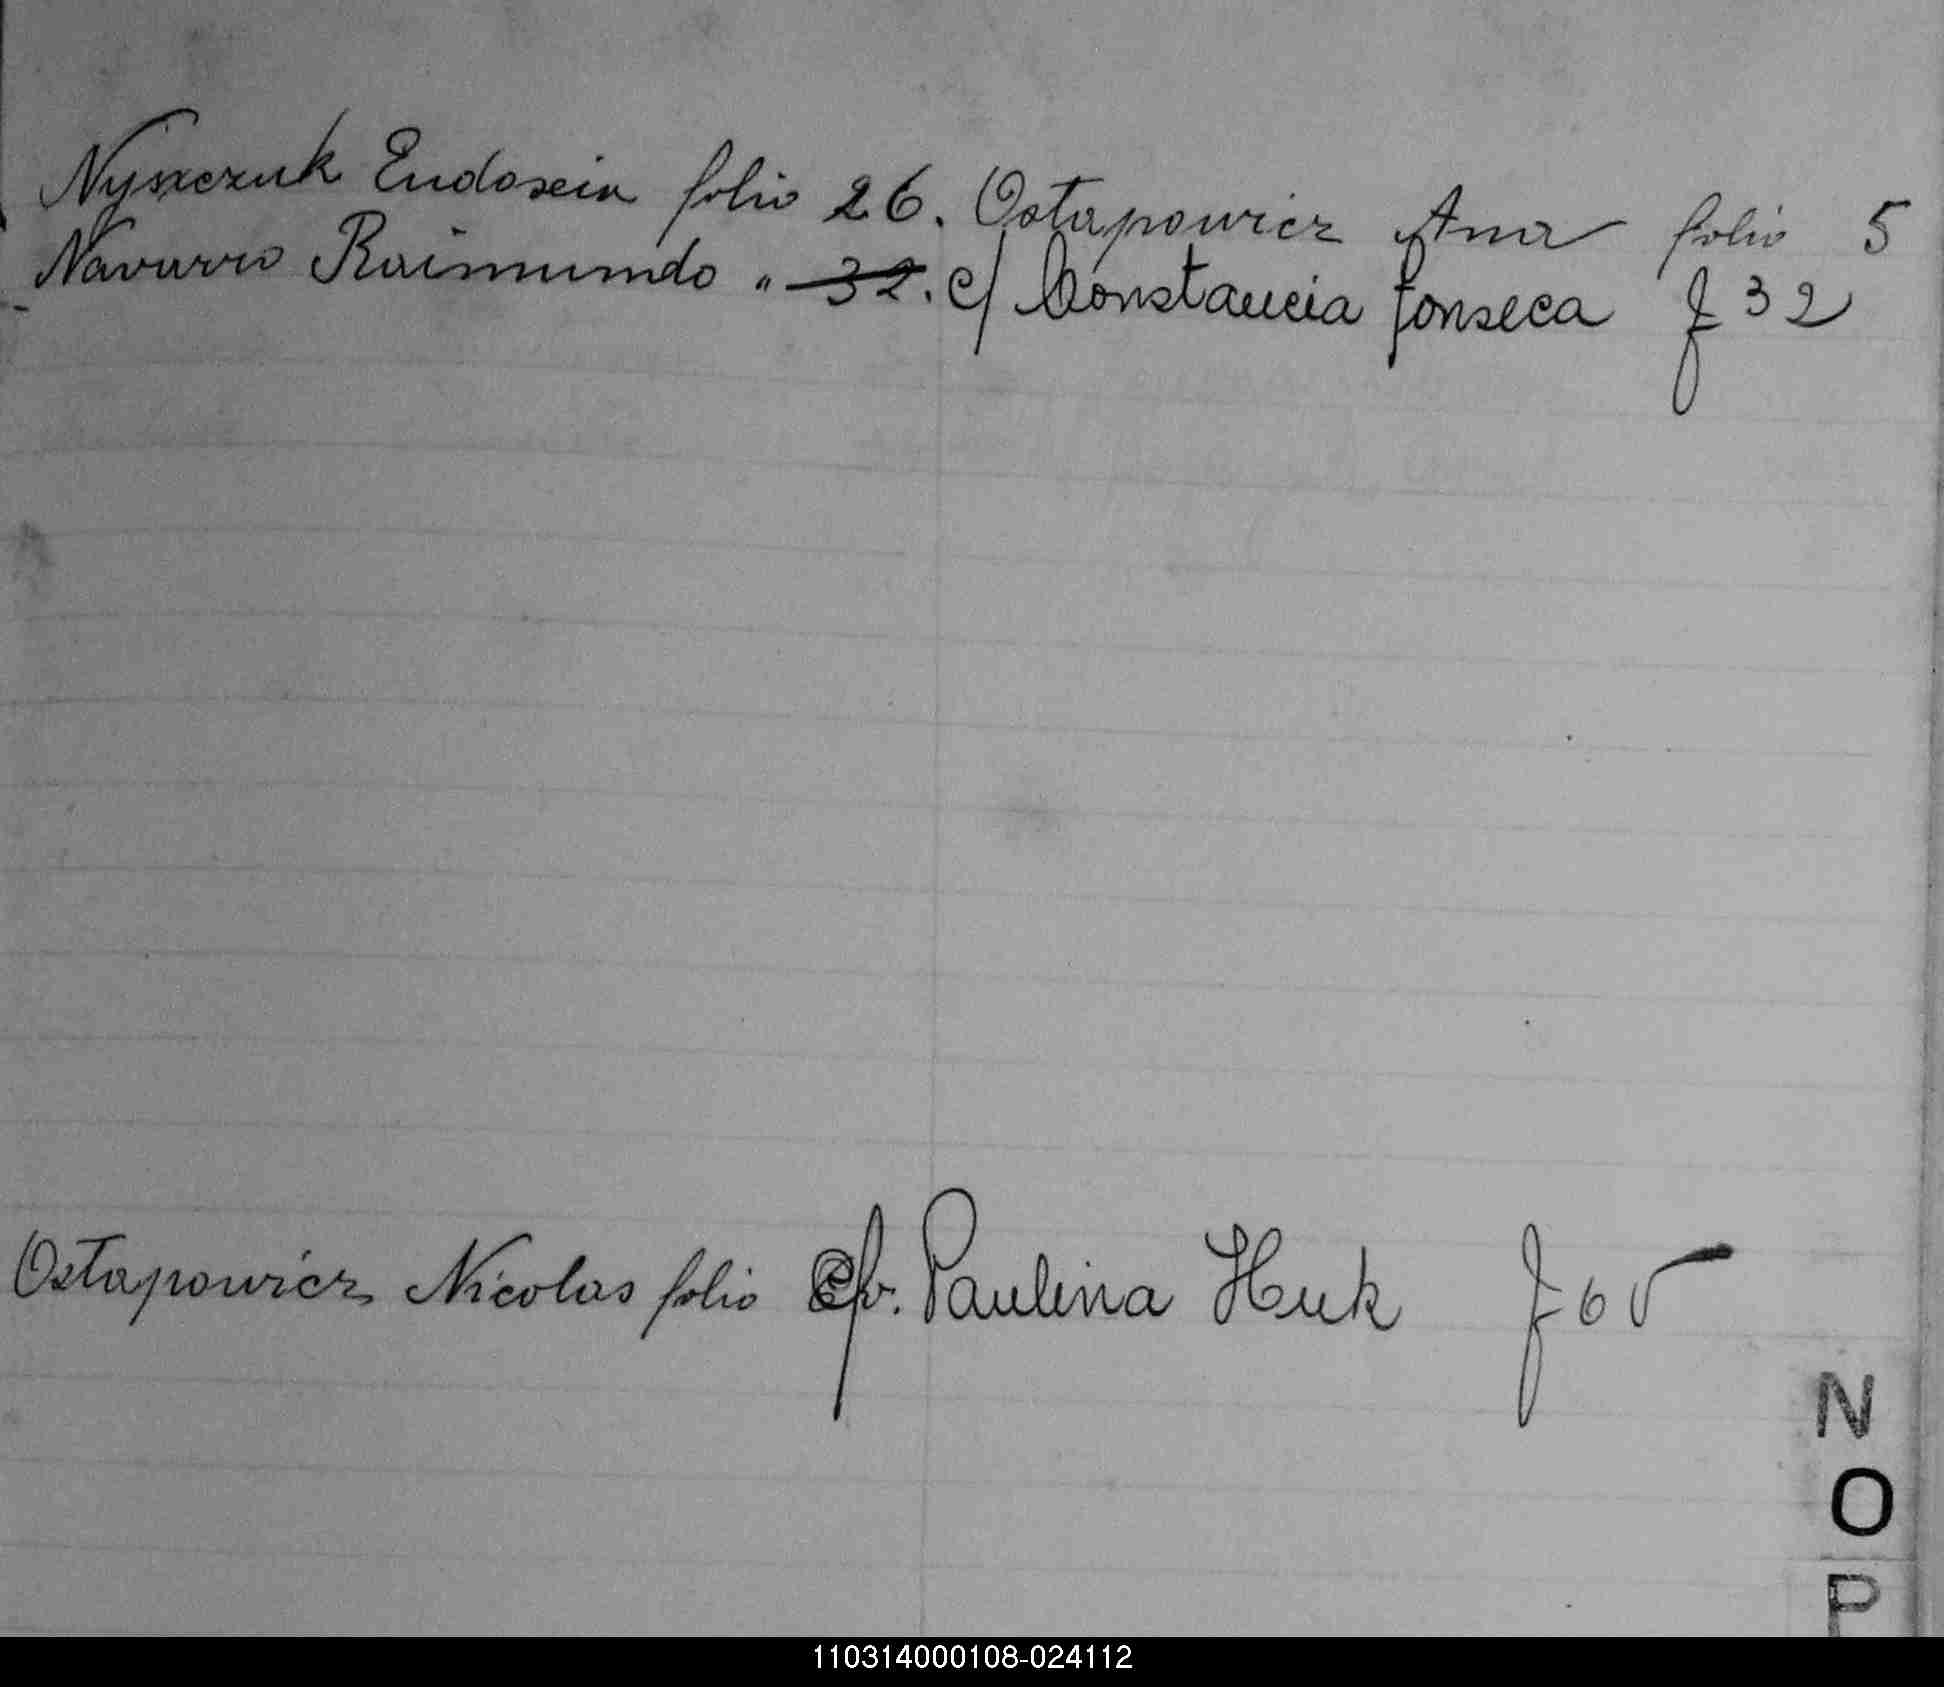 Nyszczuk Eudoxia folio 26. Ostapowicz Ana folio 5
Navarro Raimundo " 32. c/ Constancia fonseca f 32
Ostapowicz Nicolas folio Paulina Huk f 65
N
O
P
110314000108-024112